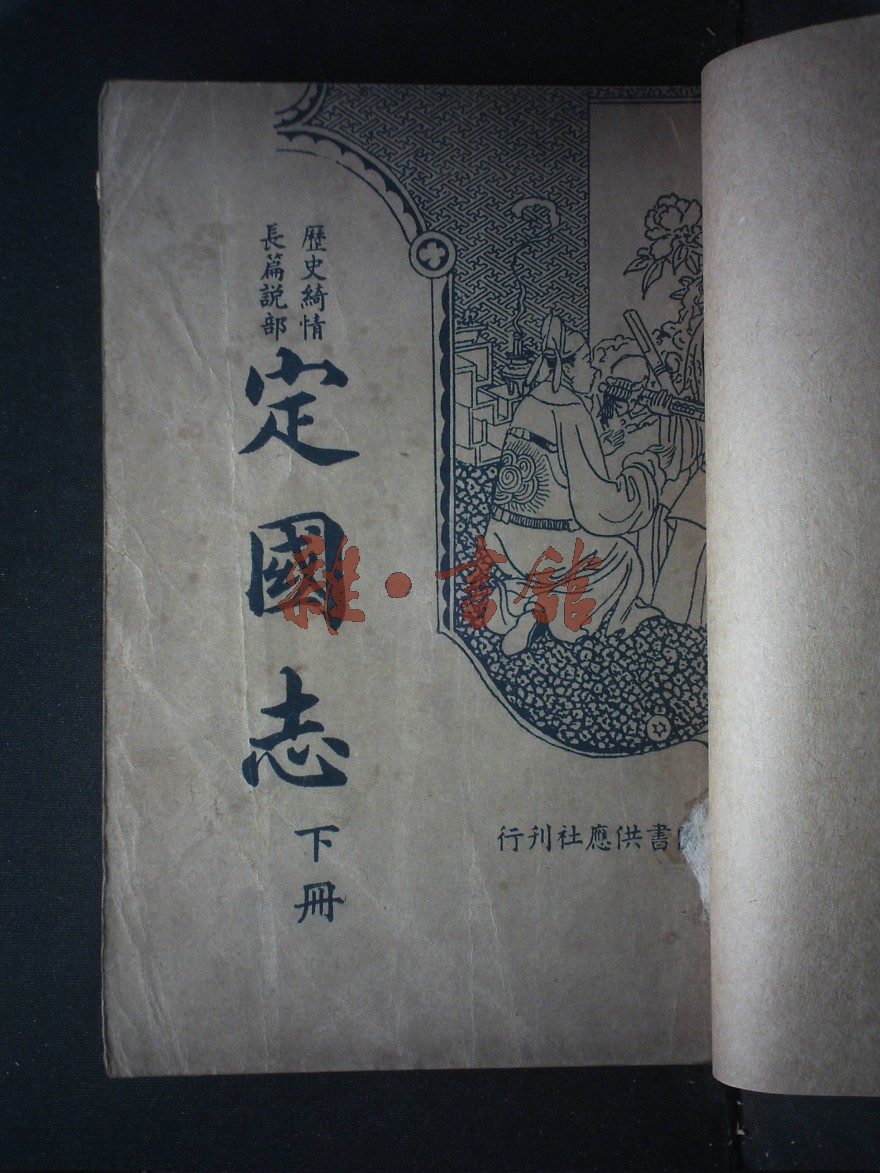 歷史綺情
長篇説部
定國志
下冊
書供應社刊行
雜·書館